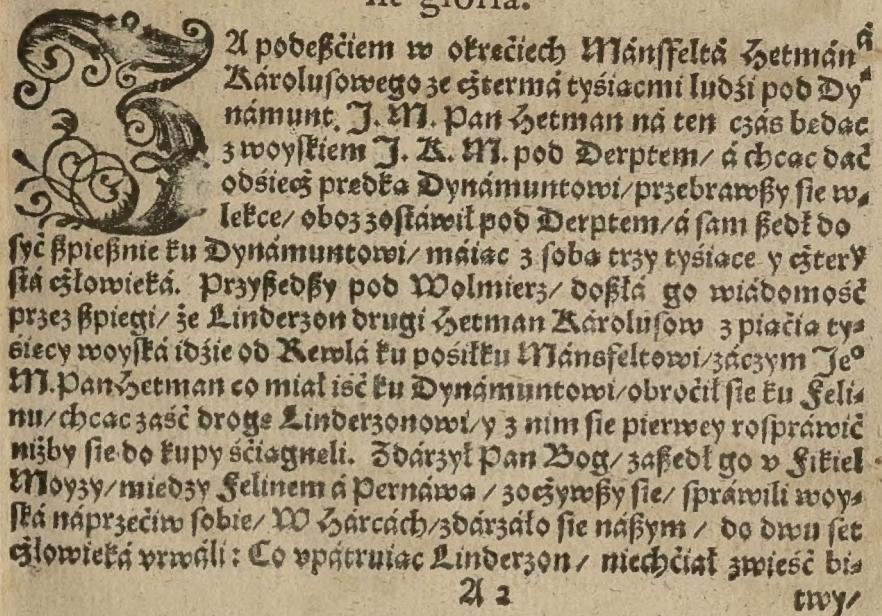 ne gloria.
ZA podeßćiem w okręćiech Mánsfeltá Hetmána
Károlusowego ze cżtermá tyśiacmi ludźi pod Dyᵃ
námunt. J. M. Pan Hetman ná ten czás bedac
z woyskiem J. K. M. pod Derptem/ á chcac dáć
odśiecż predka Dynámuntowi/przebrawßy sie w-
lekce/ oboz zostáwił pod Derptem/á sam ßedł do
syć ßpießnie ku Dynámuntowi/ máiac z soba trzy tyśiace y cżtery
stá cżłowieká. Przyßedßy pod Wolmierz/ doßłá go wiádomość
przez ßpiegi/ że Linderzon drugi Hetman Károlusow z piąćia ty-
śiecy woyská idźie od Rewlá ku pośiłku Mánsfeltowi/záczym Jeᵒ
M.Pan Hetman co miał iść ku Dynámuntowi/obroćił sie ku Feli-
nu/chcac zaść droge Linderzonowi/y z nim sie pierwey rospráwić
niżby sie do kupy śćiagneli. Zdárzył Pan Bog/ zaßedł go v Fikiel
Moyzy/miedzy Felinem á Pernáwa / zocżywßy sie/ spráwili woy-
ská náprzećiw sobie/ W Hárcách/zdárzáło sie náßym / do dwu set
cżłowieká vrwáli : Co vpátruiac Linderzon/ niechćiał zwieść bi-
A 2 twy/